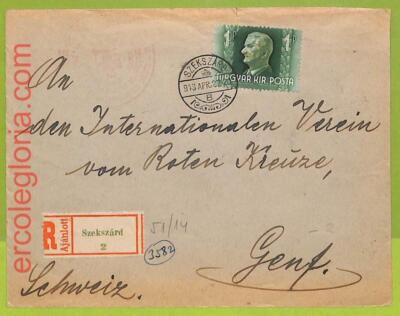 ercolegloria.com
SZEKSZÁRD
MAGYAR KIR. POSTA
An
den Internationalen Verein
vom Roten Kreuze,
R
Ajánlott
Szekszárd
2
51/14
3582
Genf.
Schweiz.